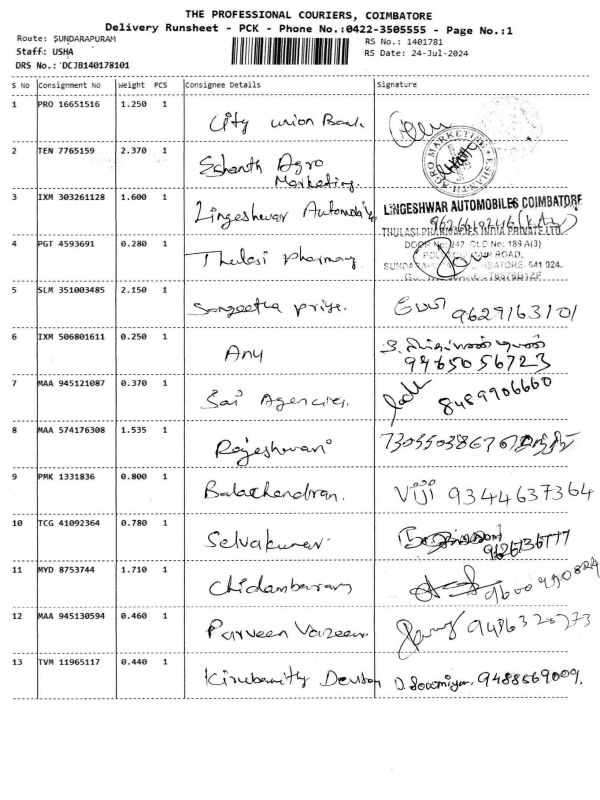 THE PROFESSIONAL COURIERS, COIMBATORE
Delivery Runsheet - PCK - Phone No.:0422-3505555 - Page No.:1
Route: SUNDARAPURAM
RS No.: 1401781
Staff: USHA
RS Date: 24-Jul-2024
DRS No.: DCJB140178101
S No Consignment No Weight PCS Consignee Details Signature
1 PRO 16651516 1.250 1 City union Bank
2 TEN 7765159 2.370 1 Eshanth Agro
Marketing.
3 IXM 303261128 1.600 1 Lingeshwar Automobiles
LINGESHWAR AUTOMOBILES COIMBATORE
THULASI PHARMACIES INDIA PRIVATE LTD
4 PGT 4593691 0.280 1 Thulasi pharmacy
5 SLM 351003485 2.150 1 Sangeetha priya. 9629163101
6 IXM 506801611 0.250 1 Any
9465056723
7 MAA 945121087 0.370 1 Sai Agencies. 8489906660
8 MAA 574176308 1.535 1 Rajeshwari
9 PMK 1331836 0.800 1 Balachandran. VIJI 9344637364
10 TCG 41092364 0.780 1 Selvakumar
11 MYD 8753744 1.710 1 Chidambaram 9600490824
12 MAA 945130594 0.460 1 Parveen Vazeer
13 TVM 11965117 0.440 1 D. Sowmiya. 9488569009.